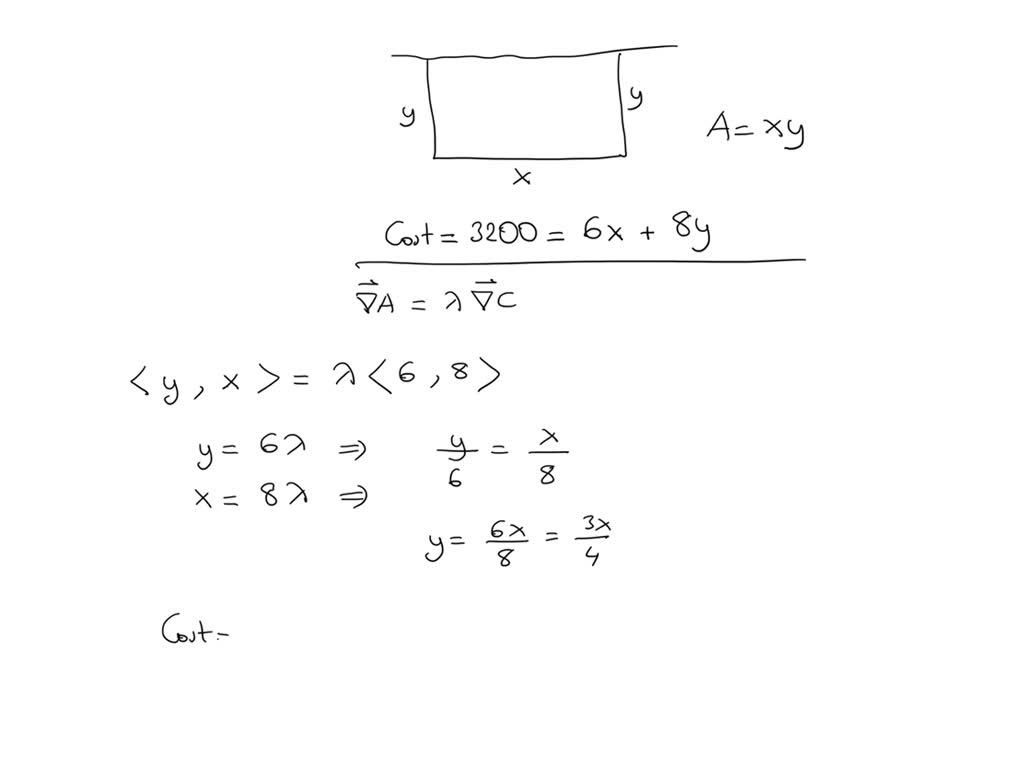 y
y
A = xy
x
Cost = 3200 = 6x + 8y
∇⃗A = λ ∇⃗C
<y, x> = λ<6, 8>
y = 6λ ⇒ y/6 = x/8
x = 8λ ⇒
y = 6x/8 = 3x/4
Cost =